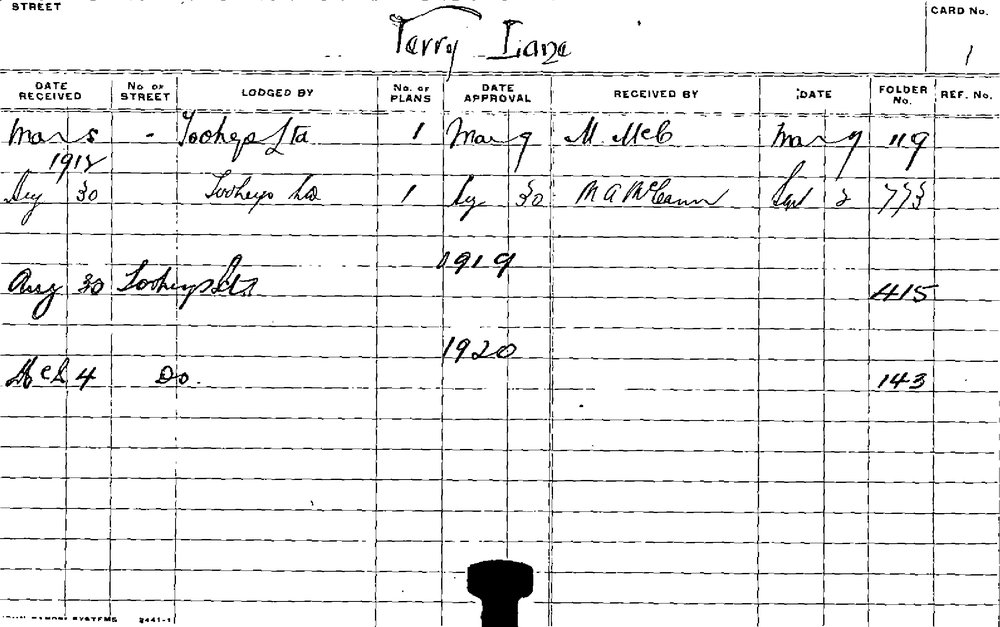 STREET
CARD No.
Terry Lane
1
DATE RECEIVED No. OF STREET LODGED BY No. OF PLANS DATE APPROVAL RECEIVED BY DATE FOLDER No. REF. No.
Mar 5 - Tooheys Ltd 1 Mar 9 M. McC Mar 9 119
Aug 30 Tooheys Ltd 1 Aug 30 M A McCann Sept 2 773
1919
Aug 30 Tooheys Ltd 415
1920
Feb 4 Do. 143
SYSTEMS 2441-1